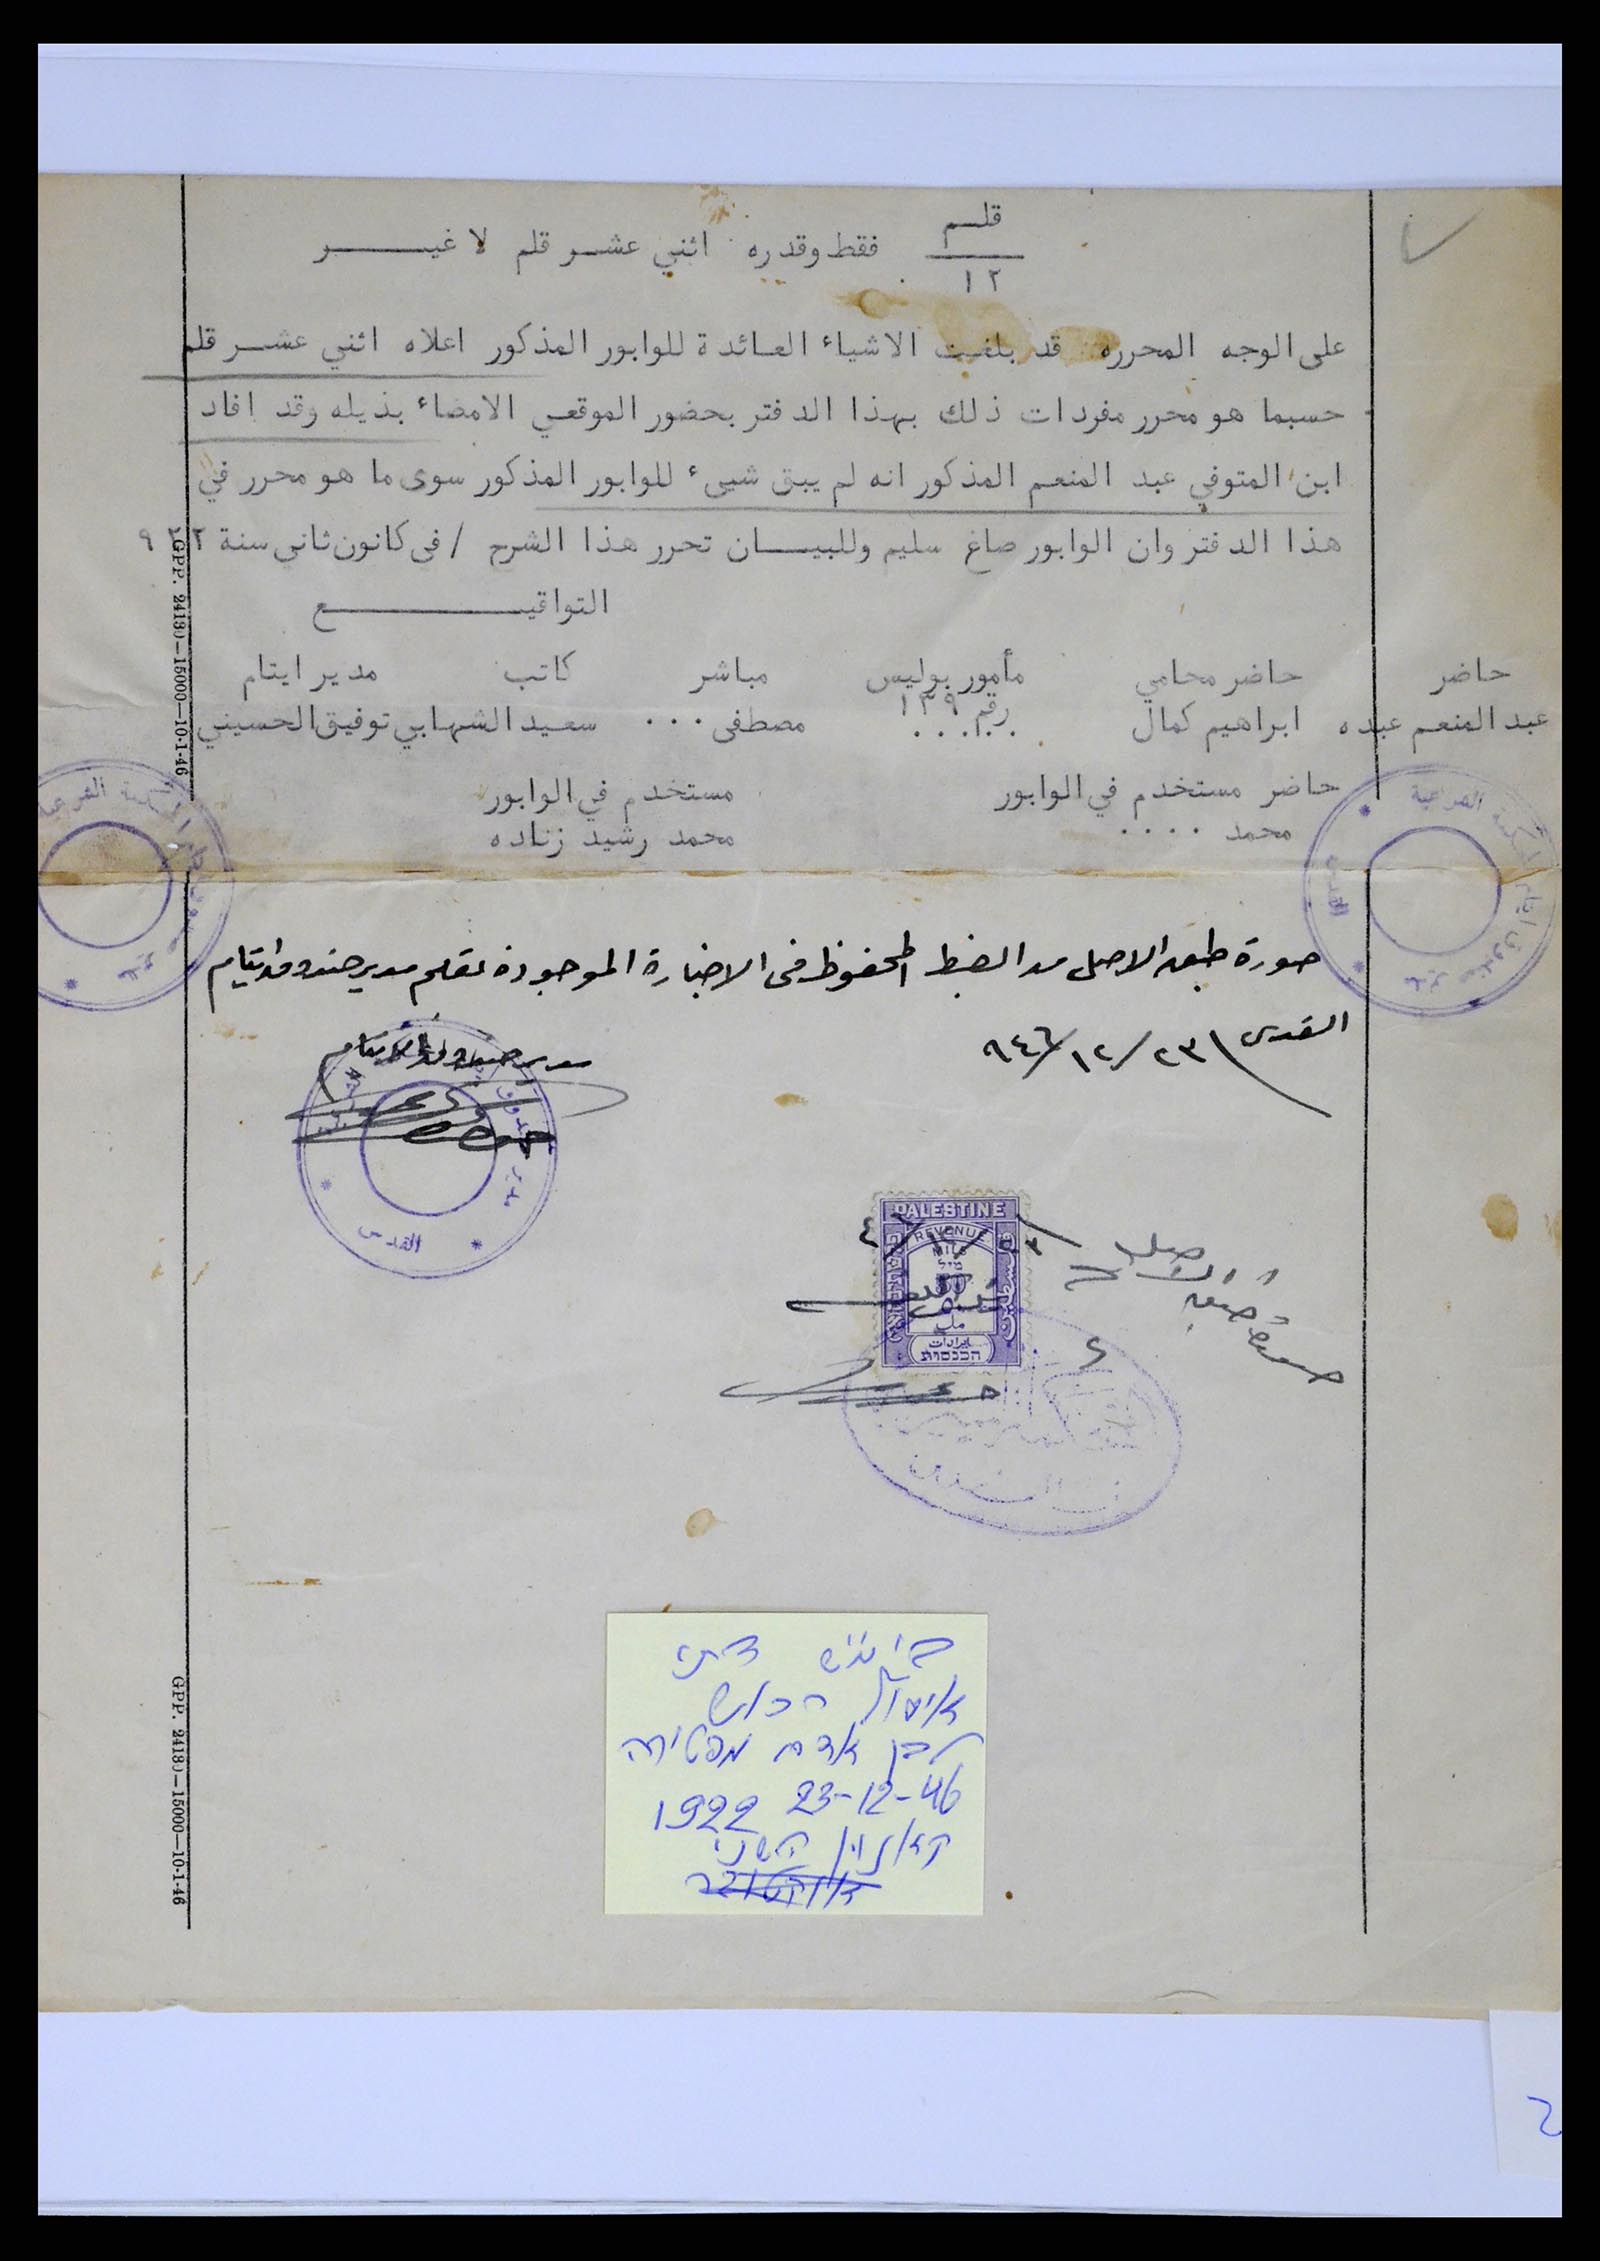 قلم
فقط وقدره اثني عشر قلم لا غير
١٢
على الوجه المحرره قد بلغت الاشياء العائدة للوابور المذكور اعلاه اثني عشر قلم
حسبما هو محرر مفردات ذلك بهذا الدفتر بحضور الموقعي الامضاء بذيله وقد افاد
ابن المتوفي عبد المنعم المذكور انه لم يبق شيىء للوابور المذكور سوى ما هو محرر في
هذا الدفتر وان الوابور صاغ سليم وللبيان تحرر هذا الشرح / في كانون ثاني سنة ٩٢٢
التواقيع
حاضر حاضر محامي مأمور بوليس مباشر كاتب مدير ايتام
عبد المنعم عبده ابراهيم كمال رقم ١٣٩ .... مصطفى ... سعيد الشهابي توفيق الحسيني
حاضر مستخدم في الوابور مستخدم في الوابور
محمد .... محمد رشيد زناده
صورة طبق الاصل من الضبط المحفوظ في الاضبارة الموجودة بقلم مدير صندوق الايتام
القدس ٢٣/١٢/٩٤٦
مدير صندوق الايتام
القدس
PALESTINE
REVENUE
MILS
מיל
50
٥٠
مل
ايرادات
הכנסות
صورة طبق الاصل
GPP. 24180—15000—10-1-46
GPP. 24180—15000—10-1-46
הרכוש
23-12-46
1922
השני